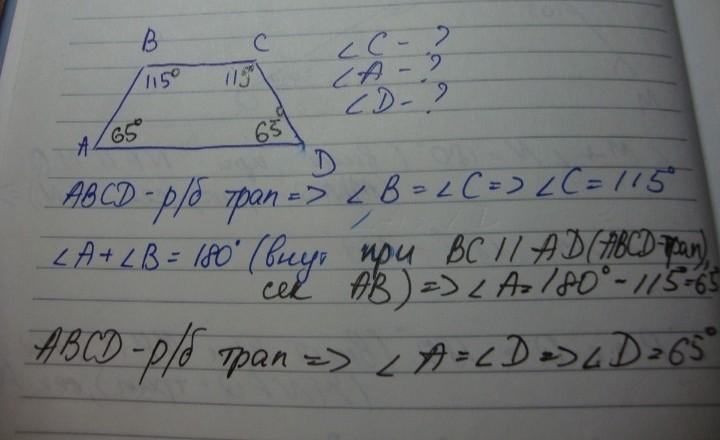 B C
∠C - ?
115° 115°
∠A - ?
∠D - ?
65° 65°
A D
ABCD - р/б трап => ∠B = ∠C => ∠C = 115°
∠A + ∠B = 180° (внут при BC || AD (ABCD-трап),
сек AB) => ∠A = 180° - 115° = 65
ABCD - р/б трап => ∠A = ∠D => ∠D = 65°